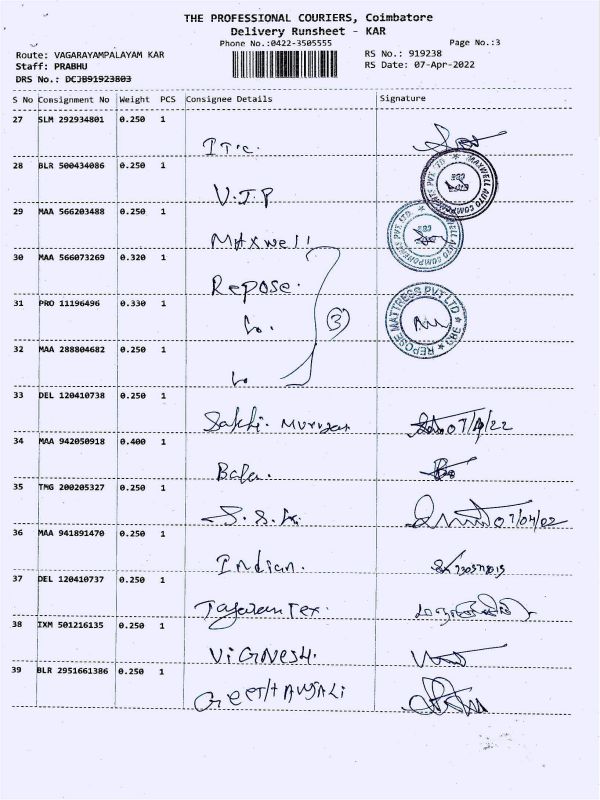 THE PROFESSIONAL COURIERS, Coimbatore
Delivery Runsheet - KAR
Phone No.:0422-3505555 Page No.:3
Route: VAGARAYAMPALAYAM KAR RS No.: 919238
Staff: PRABHU RS Date: 07-Apr-2022
DRS No.: DCJB91923803
S No Consignment No Weight PCS Consignee Details Signature
27 SLM 292934801 0.250 1
ITC.
28 BLR 500434086 0.250 1
V.I.P
MAXWELL AUTO COMPONENTS PVT LTD
29 MAA 566203488 0.250 1
Maxwell
30 MAA 566073269 0.320 1
Repose.
31 PRO 11196496 0.330 1
3
REPOSE MATTRESS PVT LTD ★ 383 ★
32 MAA 288804682 0.250 1
33 DEL 120410738 0.250 1
Sakthi. Murugan 07/4/22
34 MAA 942050918 0.400 1
Bala.
35 TMG 200205327 0.250 1
S.S.K. 07/04/22
36 MAA 941891470 0.250 1
Indian.
37 DEL 120410737 0.250 1
Tex.
38 IXM 501216135 0.250 1
VIGNESH.
39 BLR 2951661386 0.250 1
GEETHANJALI